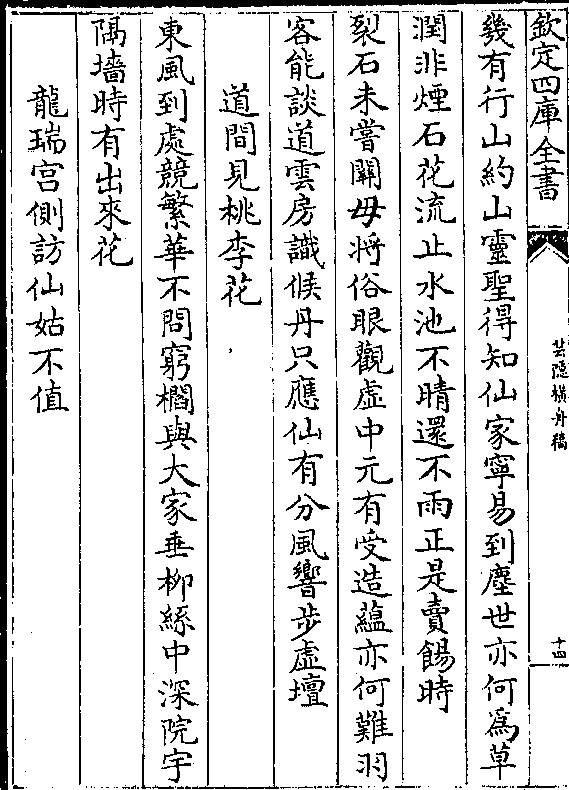 欽定四庫全書
芸隱橫舟稿
十四
幾有行山約山靈聖得知仙家寧易到塵世亦何為草
潤非煙石花流止水池不晴還不雨正是賣餳時
裂石未嘗關毋將俗眼觀虛中元有受造蘊亦何難羽
客能談道雲房識候丹只應仙有分風響步虛壇
道間見桃李花
東風到處競繁華不問窮櫩與大家垂柳絲中深院宇
隔墻時有出來花
龍瑞宫側訪仙姑不值